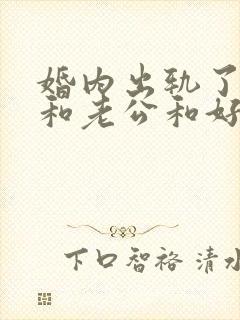 婚内出轨了
和老公和好
下口智裕 清水